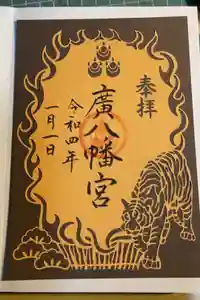 奉拝
廣八幡宮
令和四年
一月一日